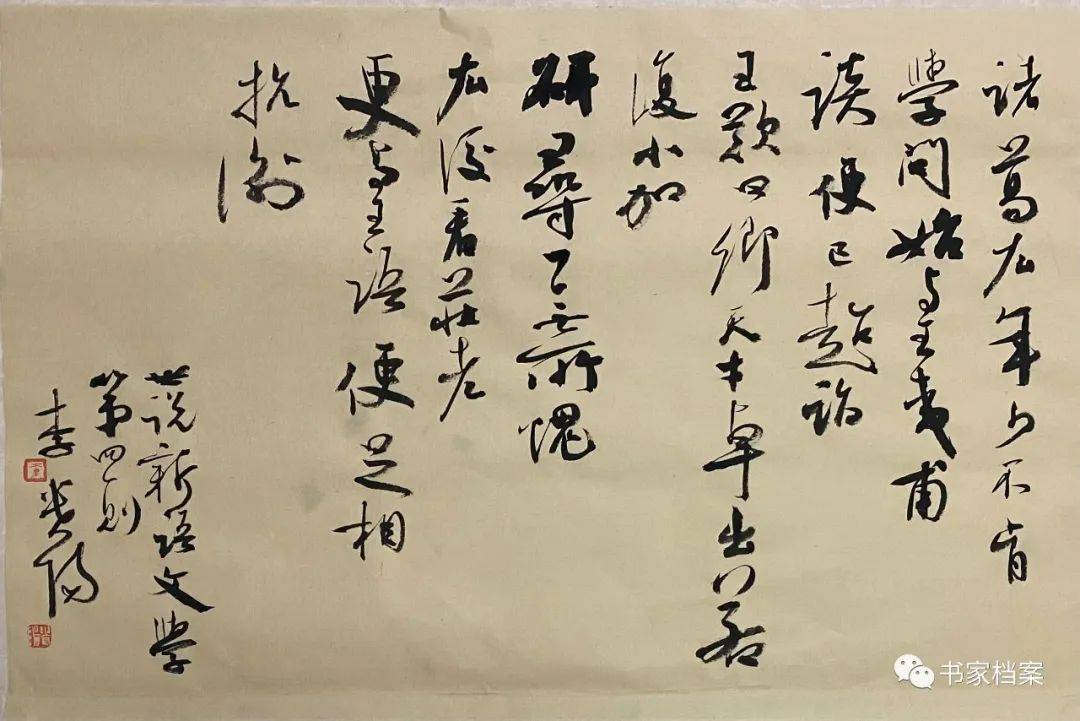 諸葛厷年少不肯
學問始与王夷甫
談便已超詣
王歎曰卿天才卓出若
復小加
研尋一無所愧
厷後看莊老
更与王語便足相
抗衡
世説新語文學
第四則
李貴陽
书家档案